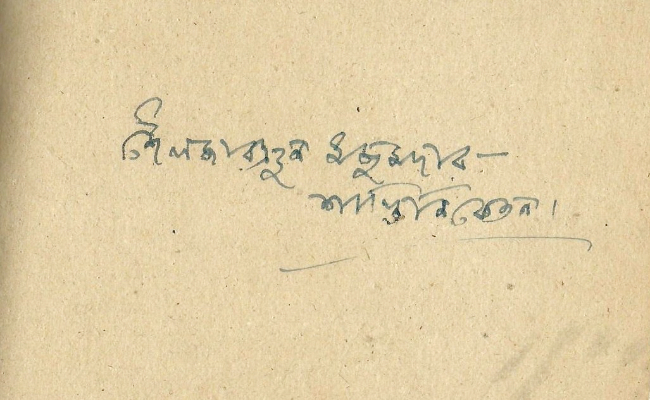 শৈলজারঞ্জন মজুমদার —
শান্তিনিকেতন।